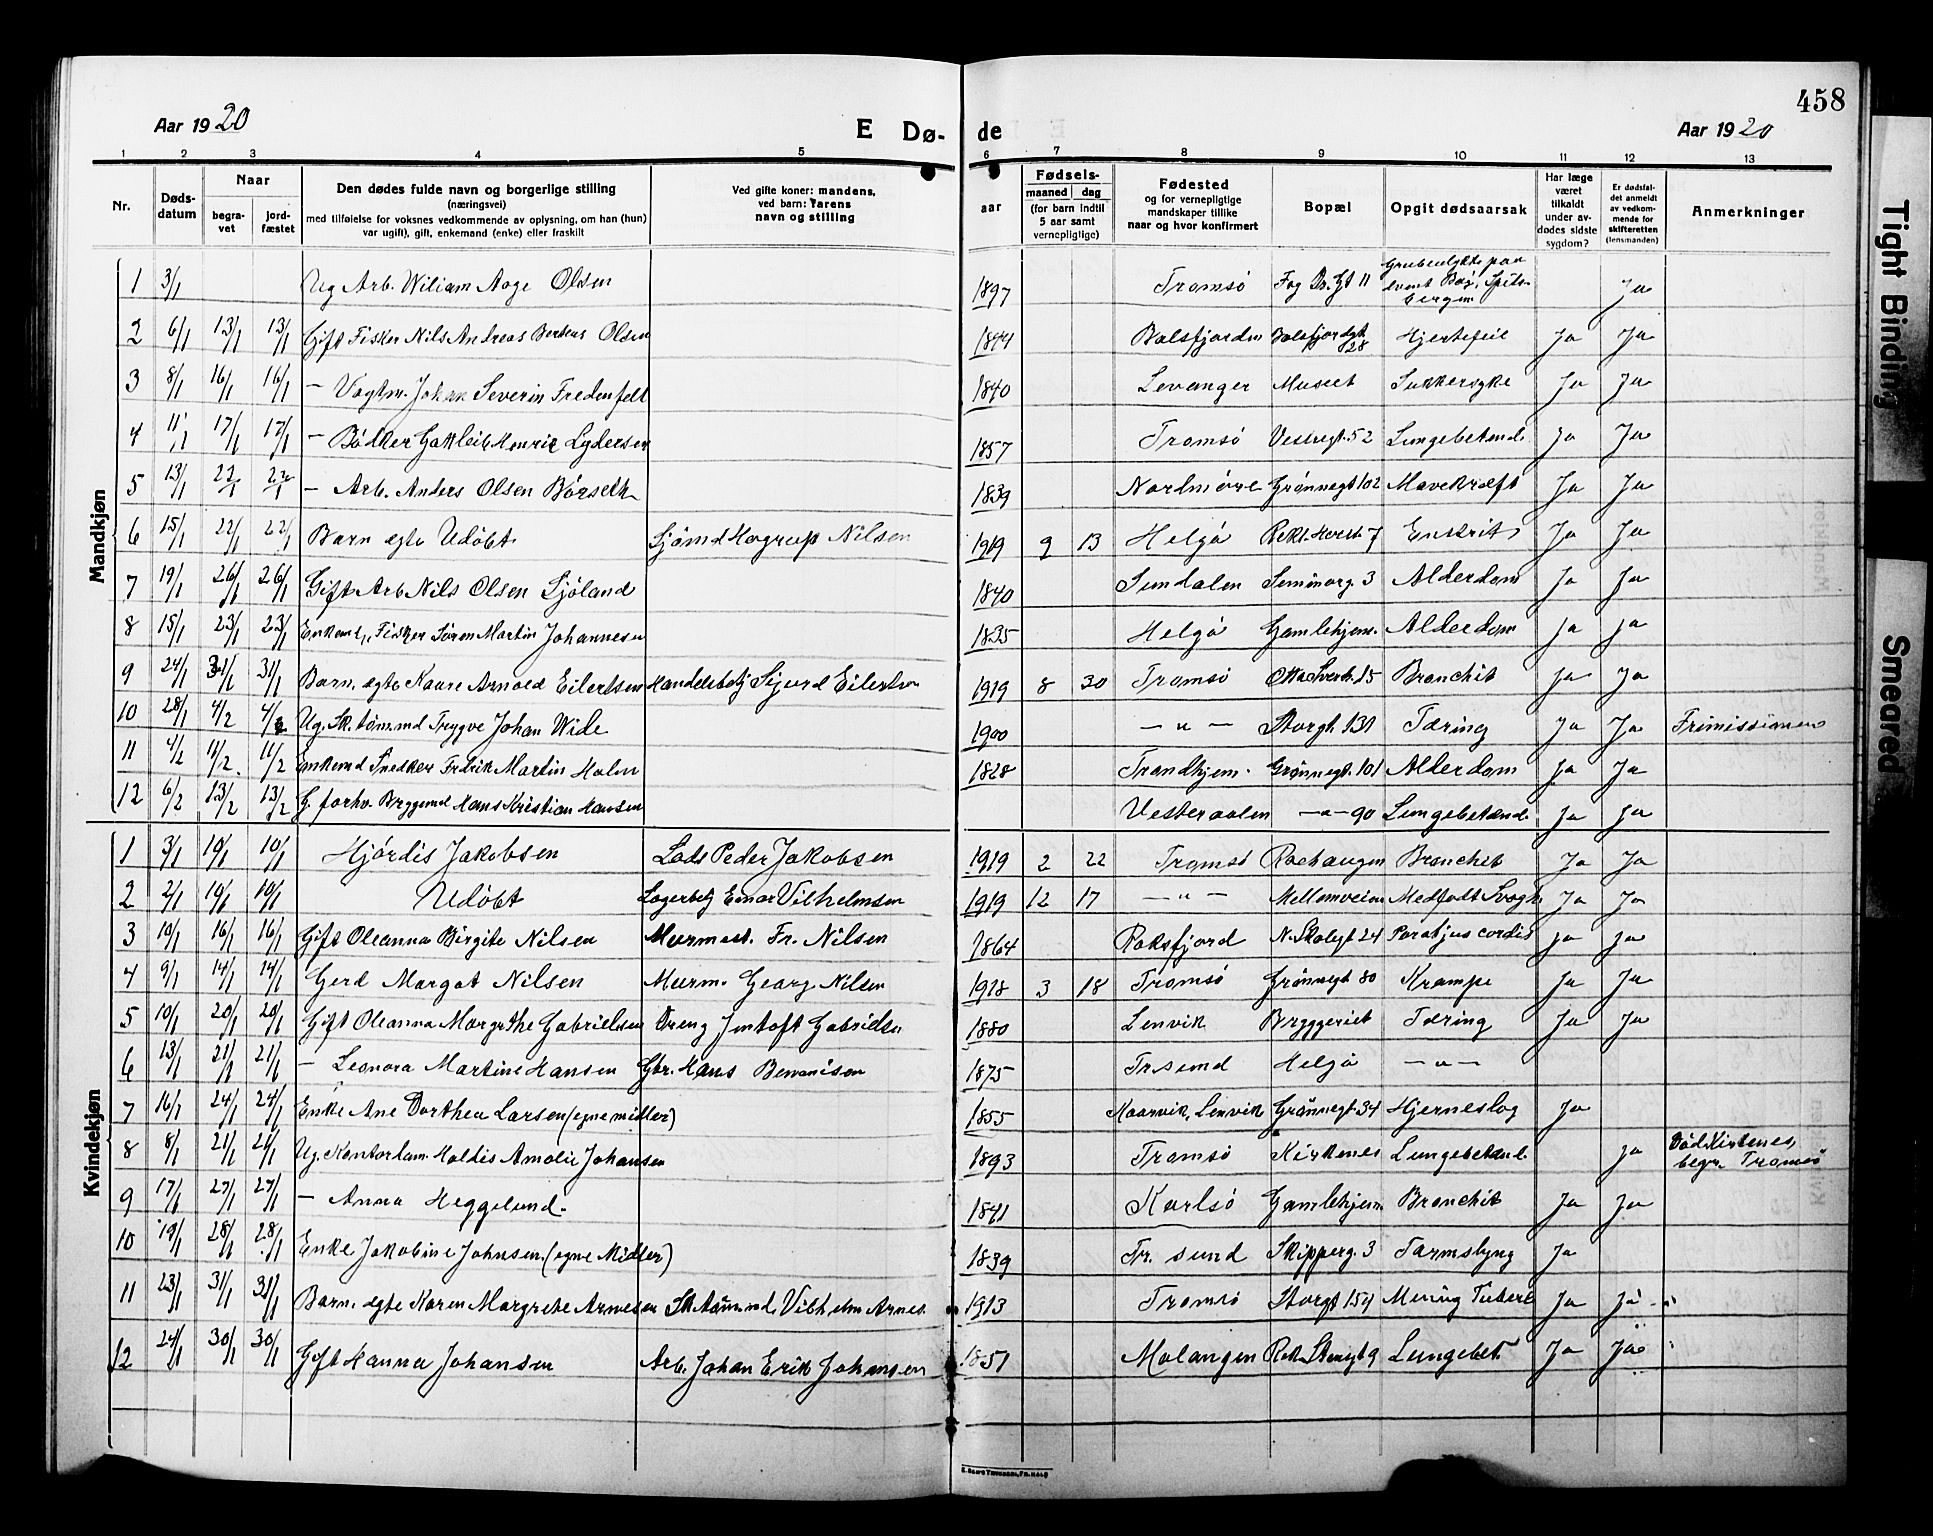 458
Aar 1920
E Dø-
de
Aar 1920
1 2 3 4 5 6 7 8 9 10 11 12 13
Nr.
Døds-
datum
Naar
begra-
vet
jord-
fæstet
Den dødes fulde navn og borgerlige stilling
(næringsvei)
med tilføielse for voksnes vedkommende av oplysning, om han (hun)
var ugift), gift, enkemand (enke) eller fraskilt
Ved gifte koner: mandens,
ved barn: farens
navn og stilling
aar
Fødsels-
maaned dag
(for barn indtil
5 aar samt
vernepligtige)
Fødested
og for vernepligtige
mandskaper tillike
naar og hvor konfirmert
Bopæl
Opgit dødsaarsak
Har læge
været
tilkaldt
under av-
dødes sidste
sygdom?
Er dødsfal-
det anmeldt
av vedkom-
mende for
skifteretten
(lensmanden)
Anmerkninger
Mandkjøn
1 3/1 Ug Arb. Wiliam Aage Olsen 1897 Tromsö Grubeulykke paa Spitsbergen Ja
2 6/1 13/1 13/1 Gift Fisker Nils Andreas Olsen 1844 Balsfjorden Balsfjordgt 28 Hjertefeil Ja Ja
3 8/1 16/1 16/1 — Vagtm. Johan Severin Fredenfelt 1840 Levanger Museet Sukkersyke Ja Ja
4 11/1 17/1 17/1 — Bödker Gottleib Henric Lydersen 1857 Tromsö Vestregt. 52 Lungebetænd. Ja Ja
5 13/1 22/1 22/1 — Arb. Anders Olsen Börseth 1839 Nordmöre Grönnegt 102 Mavekræft Ja Ja
6 15/1 22/1 22/1 Barn ægte Udöbt Sjömd Hagrup Nilsen 1919 9 13 Helgö Enterit Ja Ja
7 19/1 26/1 26/1 Gift Arb Nils Olsen Sjöland 1840 Sundalen Seminarg. 3 Alderdom Ja Ja
8 15/1 23/1 23/1 Enkem. Fisker Sören Martin Johannesen 1835 Helgö Gamlehjem. Alderdom Ja Ja
9 24/1 31/1 31/1 Barn. ægte Kaare Arnold Eilertsen Handelsbetj Sigurd Eilertsen 1919 8 30 Tromsö 15 Bronchit Ja Ja
10 28/1 4/2 4/2 Ug. Sk. tömmmd Trygve Johan Wide 1900 — " — Storgt 131 Tæring Ja Ja Frimissionen
11 4/2 11/2 11/2 Enkemd Snedker Fredrik Martin Holm 1828 Trondhjem. Grönnegt. 101 Alderdom Ja Ja
12 6/2 13/2 13/2 G. forhv. Bryggemd Hans Kristian Hansen Vesteraalen — " — 90 Lungebetænd Ja Ja
Kvindekjøn
1 3/1 10/1 10/1 Hjördis Jakobsen Lods Peder Jakobsen 1919 2 22 Tromsö Bronchit Ja Ja
2 2/1 10/1 10/1 Udöbt Lagerbetj Einar Vilhelmsen 1919 12 17 — " — Mellomveien Medfödt Svagh Ja Ja
3 10/1 16/1 16/1 Gift Oleanna Birgite Nilsen Murmest. Fr. Nilsen 1864 Raksfjord N. Skolegt 24 Paralysis cordis Ja Ja
4 9/1 14/1 14/1 Gerd Margot Nilsen Murm. Georg Nilsen 1918 3 18 Tromsö Grönnegt 80 Krampe Ja Ja
5 10/1 20/1 20/1 Gift Oleanna Margrethe Gabrielsen Dreng Jentoft Gabrielsen 1880 Lenvik Bryggeriet Tæring Ja Ja
6 13/1 21/1 21/1 — Leonora Martine Hansen Gbr. Hans Benonisen 1875 Tr.sund Helgö — " —
7 16/1 24/1 24/1 Enke Ane Dorthea Larsen (egne midler) 1855 Kaarvik, Lenvik Grönnegt 34 Hjerneslag Ja
8 8/1 21/1 21/1 Ug. Kontordam. Haldis Amalie Johansen 1893 Tromsö Kirkenes Lungebetænd. Ja Död Kirkenes, begr. Tromsö
9 17/1 27/1 27/1 — Anna Heggelund. 1841 Karlsö Gamlehjem Bronchit Ja Ja
10 19/1 28/1 28/1 Enke Jakobine Johnsen (egne Midler) 1839 Tr. sund Skipperg. 3 Tarmslyng Ja
11 23/1 31/1 31/1 Barn. ægte Karen Margrete Arnesen Sk. tömmmd. Vilhelm Arnes. 1913 Tromsö Storgt 154 Mening Tuberk Ja Ja
12 24/1 30/1 30/1 Gift Hanna Johansen Arb. Johan Erik Johansen 1851 Malangen Lungebet Ja Ja
Tight Binding
Smeared